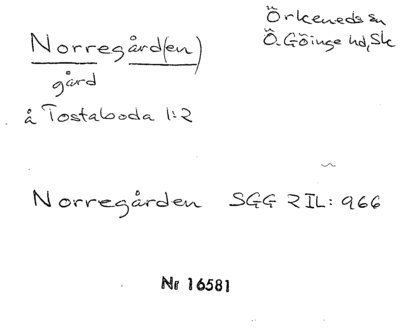 Norregård(en)
Örkeneds sn
Ö. Göinge hd, Sk
gård
å Tostaboda 1:2
Norregården SGG RIL: 966
Nr 16581